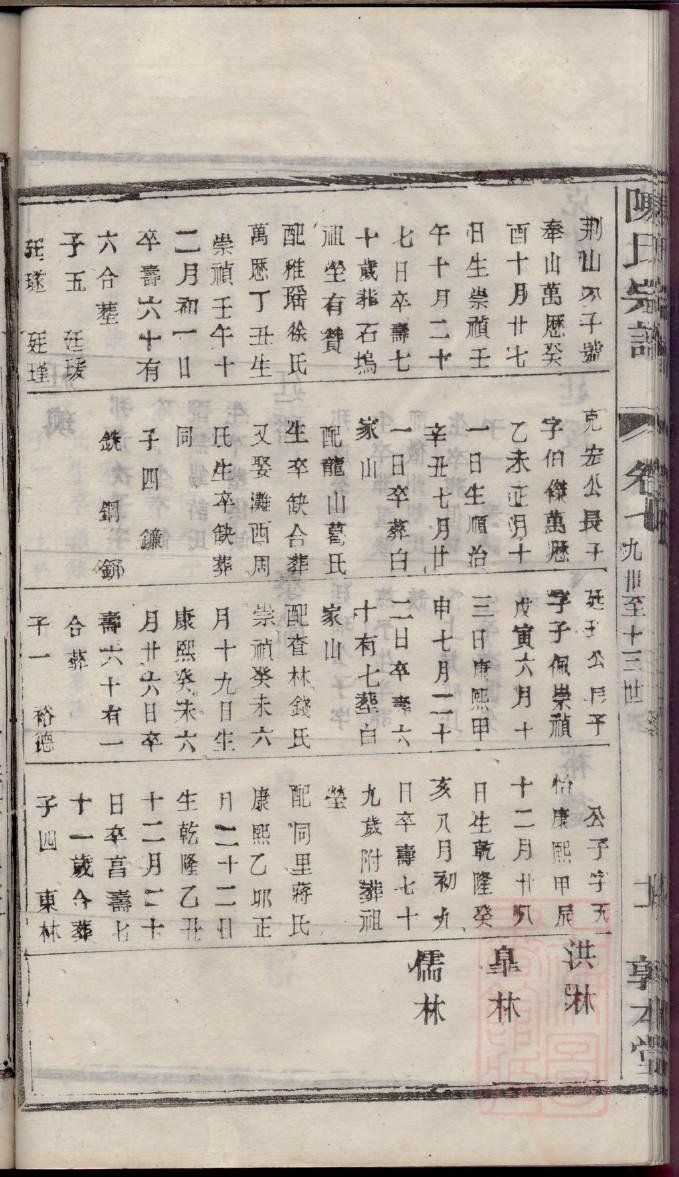 陳氏宗譜
卷七
九世至十三世
十
敦本堂
荆山 子號
奉山萬歷癸
酉十月廿七
日生崇禎壬
午十月二十
七日卒壽七
十歲葬石塢
祖塋有贊
配雅瑶徐氏
萬歷丁丑生
崇禎壬午十
二月初一日
卒壽六十有
六合墓
子五 廷瑗
廷璲 廷瑾
克宏公長子
字伯傑萬歷
乙未正月十
一日生順治
辛丑七月廿
一日卒葬白
家山
配龍山葛氏
生卒缺合葬
又娶灘西周
氏生卒缺葬
同
子四 鐮
銑 鋼 鎁
廷 公長子
字子佩崇禎
戊寅六月十
三日康熙甲
申七月二十
二日卒壽六
十有七塟白
家山
配査林錢氏
崇禎癸未六
月十九日生
康熙癸未六
月廿六日卒
壽六十有一
合葬
子一 裕德
公子字天
怡康熙甲辰
十二月廿八
日生乾隆癸
亥八月初九
日卒壽七十
九歲附葬祖
塋
配同里蔣氏
康熙乙丒正
月二十二日
生乾隆乙丑
十二月二十
日卒亯壽七
十一歲合葬
子四 東林
洪林
臯林
儒林